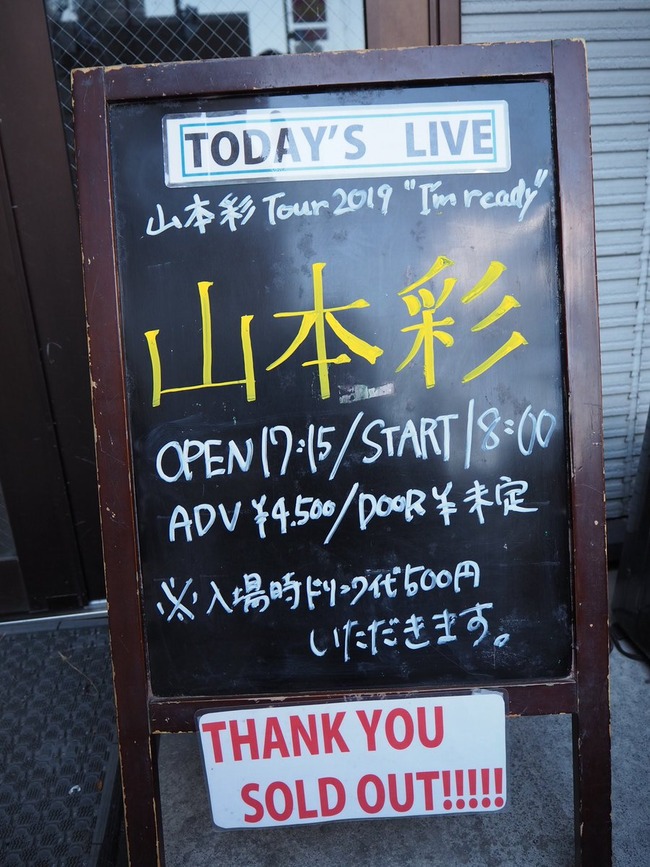 TODAY'S LIVE
山本彩 Tour 2019 "I'm ready"
山本彩
OPEN 17:15/START 18:00
ADV ¥4.500/DOOR ¥未定
※入場時ドリンク代500円
いただきます。
THANK YOU
SOLD OUT!!!!!